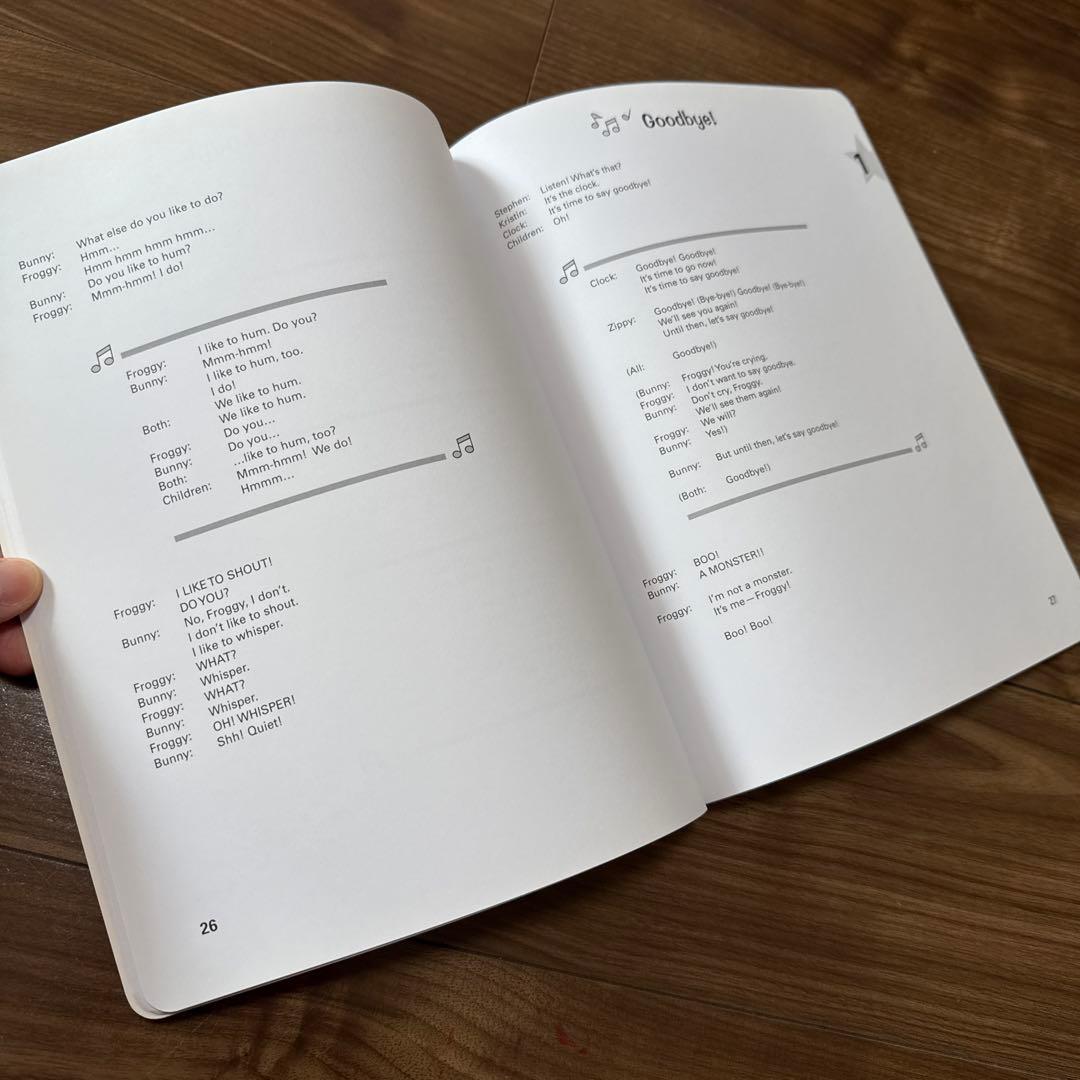 Bunny: What else do you like to do?
Froggy: Hmm...
Hmm hmm hmm hmm...
Bunny: Do you like to hum?
Froggy: Mmm-hmm! I do!
Froggy: I like to hum. Do you?
Bunny: Mmm-hmm!
I like to hum, too.
I do!
Both: We like to hum.
We like to hum.
Froggy: Do you...
Bunny: Do you...
Both: ...like to hum, too?
Children: Mmm-hmm! We do!
Hmmm...
Froggy: I LIKE TO SHOUT!
DO YOU?
Bunny: No, Froggy, I don't.
I don't like to shout.
I like to whisper.
Froggy: WHAT?
Bunny: Whisper.
Froggy: WHAT?
Bunny: Whisper.
Froggy: OH! WHISPER!
Bunny: Shh! Quiet!
26
Goodbye!
1
Stephen: Listen! What's that?
Kristin: It's the clock.
Clock: It's time to say goodbye!
Children: Oh!
Clock: Goodbye! Goodbye!
It's time to go now!
It's time to say goodbye!
Zippy: Goodbye! (Bye-bye!) Goodbye! (Bye-bye!)
We'll see you again!
Until then, let's say goodbye!
(All: Goodbye!)
(Bunny: Froggy! You're crying.
Froggy: I don't want to say goodbye.
Bunny: Don't cry, Froggy.
We'll see them again!
Froggy: We will?
Bunny: Yes!)
Bunny: But until then, let's say goodbye!
(Both: Goodbye!)
Froggy: BOO!
Bunny: A MONSTER!!
Froggy: I'm not a monster.
It's me—Froggy!
Boo! Boo!
27